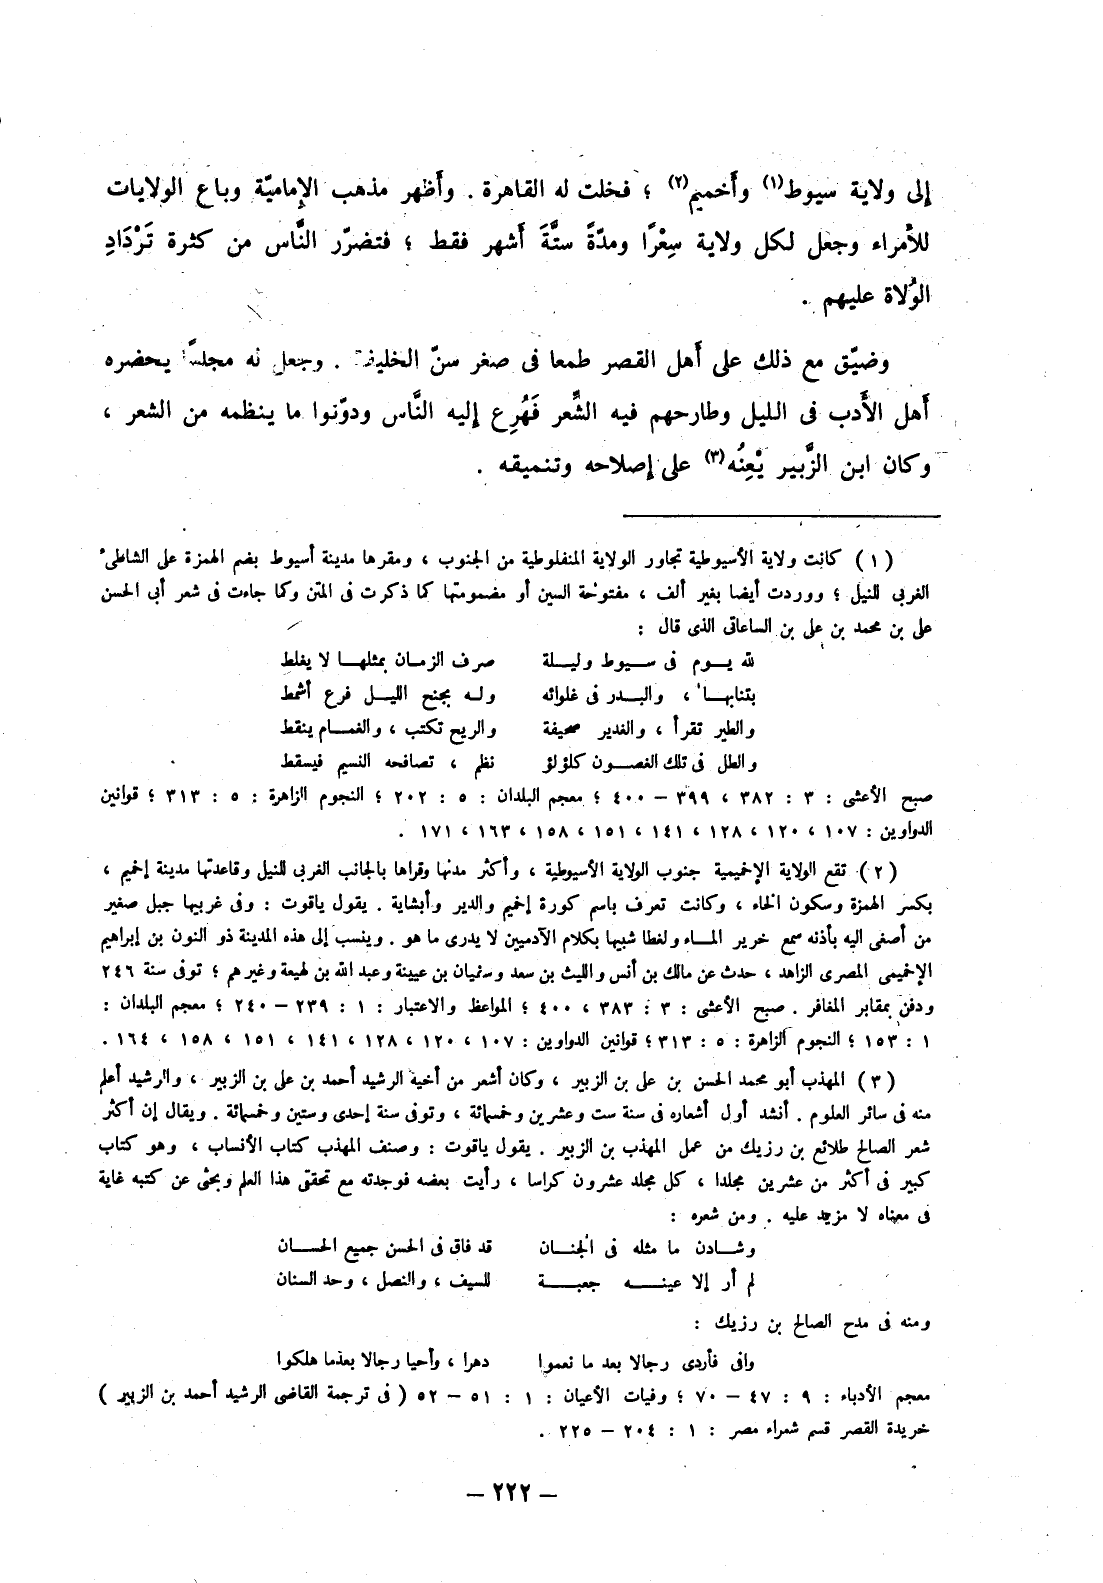 إلى ولاية سيوط(١) وأخميم(٢) ؛ فخلت له القاهرة . وأظهر مذهب الإماميّة وباع الولايات
للأمراء وجعل لكل ولاية سِعْرًا ومدّةً ستَّةَ أشهر فقط ؛ فتضرّر النَّاس من كثرة تَرْدَادِ
الوُلاة عليهم .
وضيّق مع ذلك على أَهل القصر طمعا فى صغر سنّ الخليفة . وجعل له مجلسًا يحضره
أَهل الأَدب فى الليل وطارحهم فيه الشِّعر فَهُرِع إليه النَّاس ودوّنوا ما ينظمه من الشعر ،
وكان ابن الزَّبير يْعِنُه(٣) على إصلاحه وتنميقه .
( ١ ) كانت ولاية الأسيوطية تجاور الولاية المنفلوطية من الجنوب ، ومقرها مدينة أسيوط بضم الهمزة على الشاطىء
الغربى للنيل ؛ ووردت أيضا بغير ألف ، مفتوحة السين أو مضمومتها كما ذكرت فى المتن وكما جاءت فى شعر أبى الحسن
على بن محمد بن على بن الساعاتى الذى قال :
لله يـوم فى سـيوط وليـلة صرف الزمـان بمثلهـا لا يغلط
بتنابهـا ، والبـدر فى غلوائه ولـه بجنح الليـل فرع أشمط
والطير تقرأ ، والغدير صحيفة والريح تكتب ، والغمـام ينقط
والطل فى تلك الغصـون كلؤلؤ نظم ، تصافحه النسيم فيسقط
صبح الأعشى : ٣ : ٣٨٢ ، ٣٩٩ – ٤٠٠ ؛ معجم البلدان : ٥ : ٢٠٢ ؛ النجوم الزاهرة : ٥ : ٣١٣ ؛ قوانين
الدواوين : ١٠٧ ، ١٢٠ ، ١٢٨ ، ١٤١ ، ١٥١ ، ١٥٨ ، ١٦٣ ، ١٧١ .
( ٢ ) تقع الولاية الإخميمية جنوب الولاية الأسيوطية ، وأكثر مدنها وقراها بالجانب الغربى للنيل وقاعدتها مدينة إخميم ،
بكسر الهمزة وسكون الخاء ، وكانت تعرف باسم كورة إخميم والدير وأبشاية . يقول ياقوت : وفى غربيها جبل صغير
من أصغى اليه بأذنه سمع خرير المـاء ولغطا شبيها بكلام الآدميين لا يدرى ما هو . وينسب إلى هذه المدينة ذو النون بن إبراهيم
الإخميمى المصرى الزاهد ، حدث عن مالك بن أنس والليث بن سعد وسفيان بن عيينة وعبد الله بن لهيعة وغيرهم ؛ توفى سنة ٢٤٦
ودفن بمقابر المغافر . صبح الأعشى : ٣ : ٣٨٣ ، ٤٠٠ ؛ المواعظ والاعتبار : ١ : ٢٣٩ – ٢٤٠ ؛ معجم البلدان :
١ : ١٥٣ ؛ النجوم الزاهرة : ٥ : ٣١٣ ؛ قوانين الدواوين : ١٠٧ ، ١٢٠ ، ١٢٨ ، ١٤١ ، ١٥١ ، ١٥٨ ، ١٦٤ .
( ٣ ) المهذب أبو محمد الحسن بن على بن الزبير ، وكان أشعر من أخيه الرشيد أحمد بن على بن الزبير ، والرشيد أعلم
منه فى سائر العلوم . أنشد أول أشعاره فى سنة ست وعشرين وخمسمائة ، وتوفى سنة إحدى وستين وخمسمائة . ويقال إن أكثر
شعر الصالح طلائع بن رزيك من عمل المهذب بن الزبير . يقول ياقوت : وصنف المهذب كتاب الأنساب ، وهو كتاب
كبير فى أكثر من عشرين مجلدا ، كل مجلد عشرون كراسا ، رأيت بعضه فوجدته مع تحققى هذا العلم وبحثى عن كتبه غاية
فى معناه لا مزيد عليه . ومن شعره :
وشـادن ما مثله فى الجنـان قد فاق فى الحسن جميع الحسـان
لم أر إلا عينـه جعبـة للسيف ، والنصل ، وحد السنان
ومنه فى مدح الصالح بن رزيك :
وافى فأردى رجالا بعد ما نعموا دهرا ، وأحيا رجالا بعدما هلكوا
معجم الأدباء : ٩ : ٤٧ – ٧٠ ؛ وفيات الأعيان : ١ : ٥١ – ٥٢ ( فى ترجمة القاضى الرشيد أحمد بن الزبير )
خريدة القصر قسم شعراء مصر : ١ : ٢٠٤ – ٢٢٥ .
– ٢٢٢ –